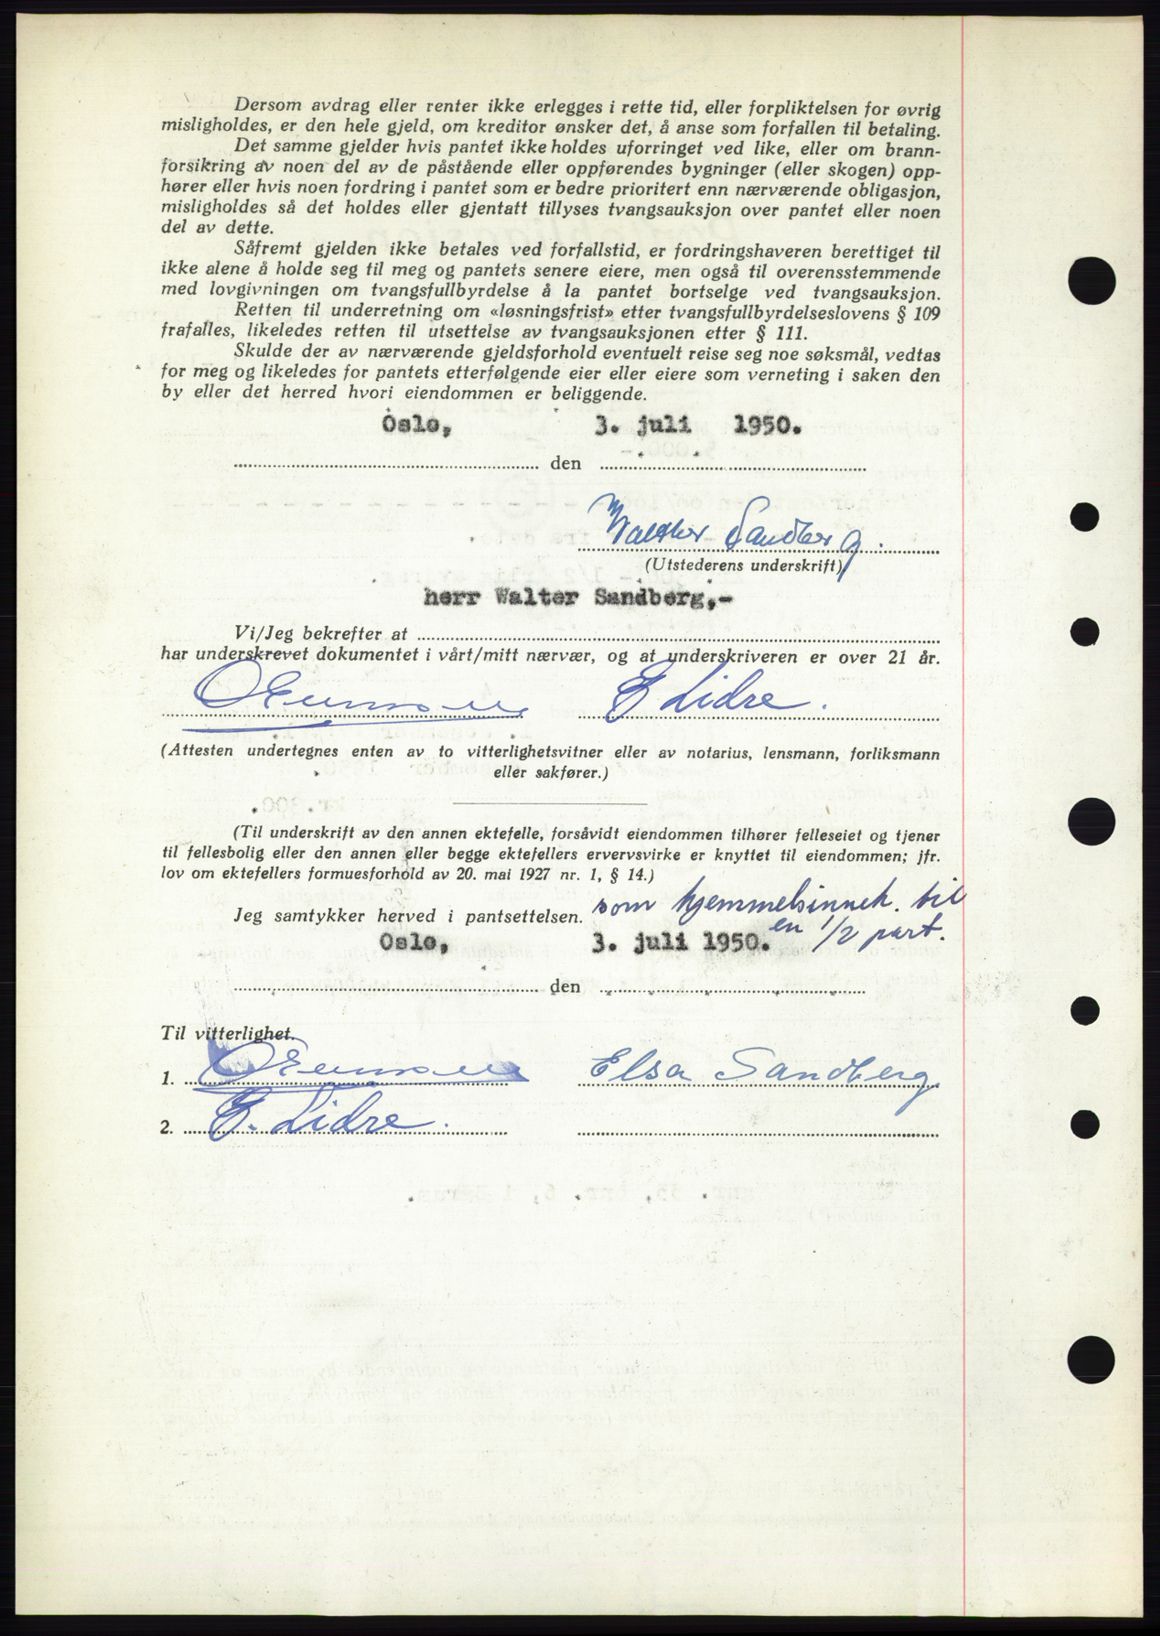 Dersom avdrag eller renter ikke erlegges i rette tid, eller forpliktelsen for øvrig
misligholdes, er den hele gjeld, om kreditor ønsker det, å anse som forfallen til betaling.
Det samme gjelder hvis pantet ikke holdes uforringet ved like, eller om brann-
forsikring av noen del av de påstående eller oppførendes bygninger (eller skogen) opp-
hører eller hvis noen fordring i pantet som er bedre prioritert enn nærværende obligasjon,
misligholdes så det holdes eller gjentatt tillyses tvangsauksjon over pantet eller noen
del av dette.
Såfremt gjelden ikke betales ved forfallstid, er fordringshaveren berettiget til
ikke alene å holde seg til meg og pantets senere eiere, men også til overensstemmende
med lovgivningen om tvangsfullbyrdelse å la pantet bortselge ved tvangsauksjon.
Retten til underretning om «løsningsfrist» etter tvangsfullbyrdelseslovens § 109
frafalles, likeledes retten til utsettelse av tvangsauksjonen etter § 111.
Skulde der av nærværende gjeldsforhold eventuelt reise seg noe søksmål, vedtas
for meg og likeledes for pantets etterfølgende eier eller eiere som verneting i saken den
by eller det herred hvori eiendommen er beliggende.
Oslo, 3. juli 1950.
den
Walther Sandberg.
(Utstederens underskrift)
herr Walter Sandberg,-
Vi/Jeg bekrefter at
har underskrevet dokumentet i vårt/mitt nærvær, og at underskriveren er over 21 år.
E Lidre.
(Attesten undertegnes enten av to vitterlighetsvitner eller av notarius, lensmann, forliksmann
eller sakfører.)
(Til underskrift av den annen ektefelle, forsåvidt eiendommen tilhører felleseiet og tjener
til fellesbolig eller den annen eller begge ektefellers ervervsvirke er knyttet til eiendommen; jfr.
lov om ektefellers formuesforhold av 20. mai 1927 nr. 1, § 14.)
Jeg samtykker herved i pantsettelsen. som hjemmelsinneh. til
en 1/2 part.
Oslo, 3. juli 1950.
den
Til vitterlighet.
1. Elsa Sandberg
2. E. Lidre.